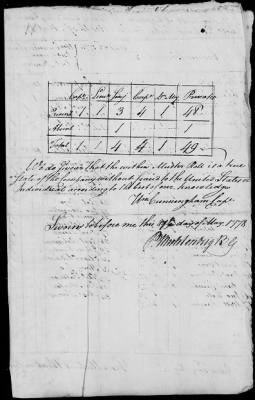 Capt Lieut Serjt Corpl Dr & Fifr Privates
Present 1 1 3 4 1 48
Absent 1 1
Total 1 1 4 4 1 49
We do Swear that the within Muster Roll is a true
State of the Company without fraud to the United States or
Individuals according to the best of our knowledge
Wm Cunningham Capt
Sworn to before me this day of May 1778
P Muhlenberg B G